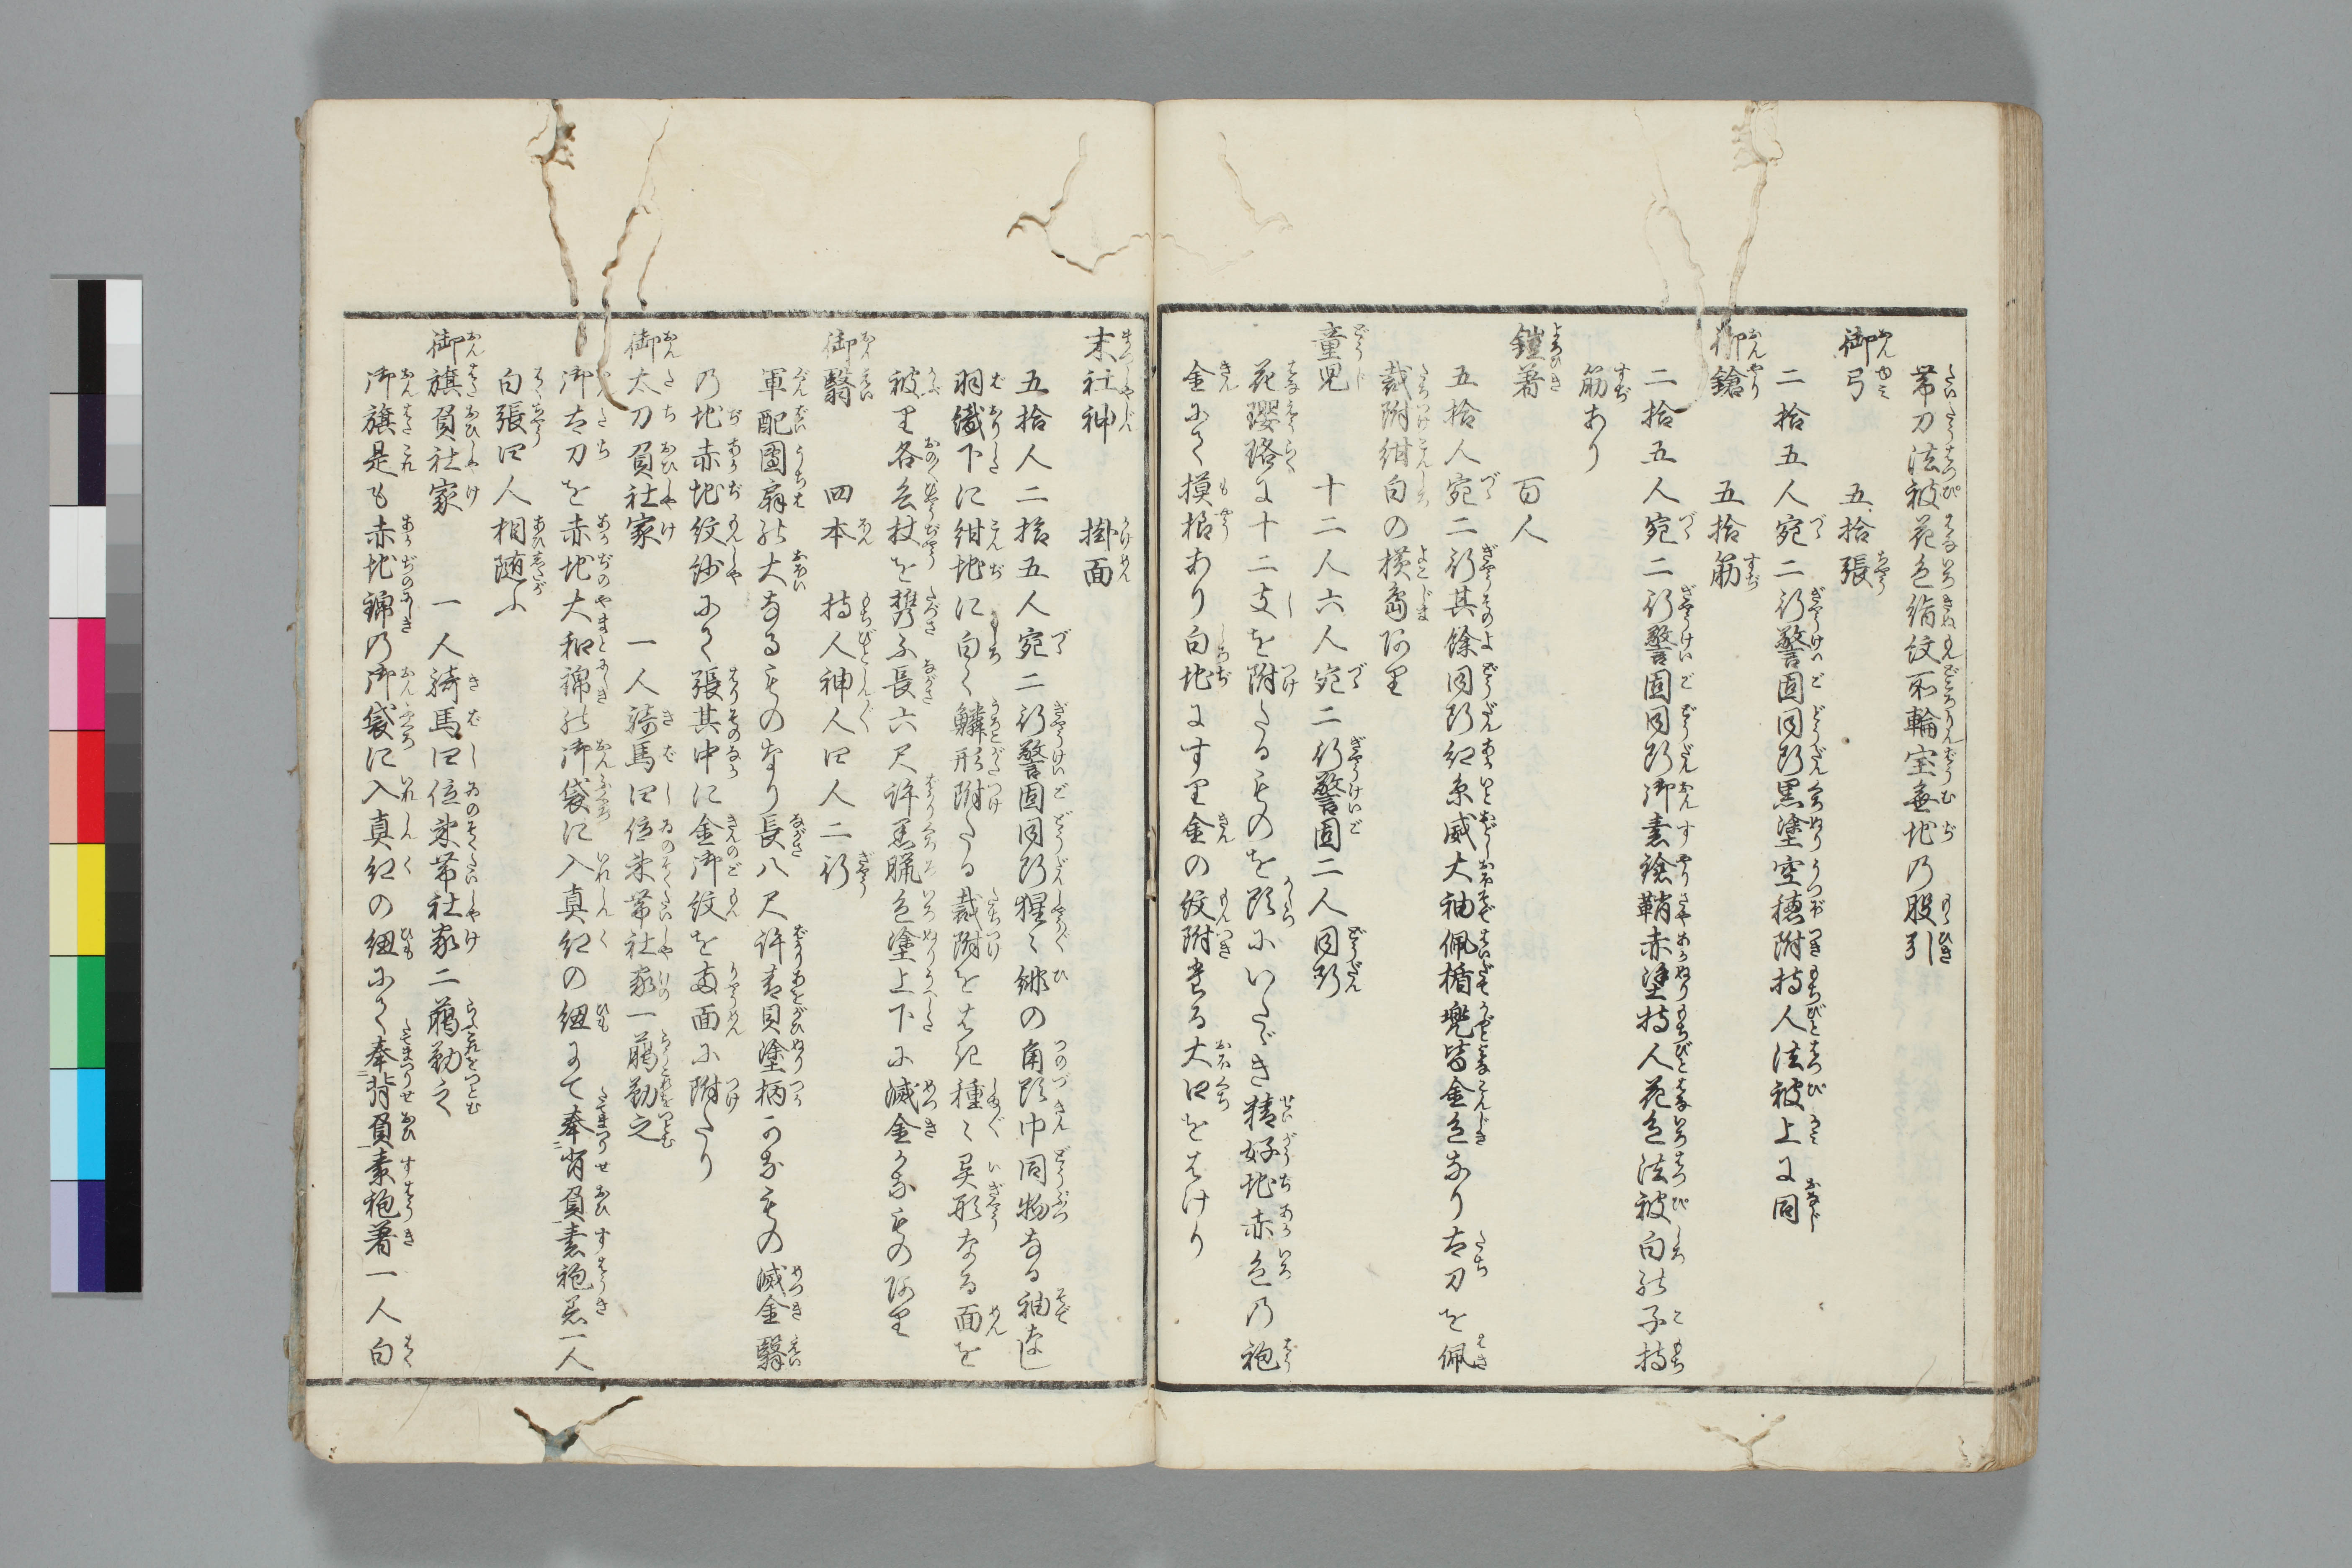 帯刀法被花色絹紋所輪宝無地乃股引
御弓　五拾張
二拾五人宛二行警固同断黒塗空穂附持人法被上に同
御鎗　五拾筋
二拾五人宛二行警固同断御素鎗鞘赤塗持人花色法被白の子持
筋あり
鎧着　百人
五拾人宛二行其餘同断紅糸威大袖佩楯兜皆金色なり太刀を佩
裁附紺白の横島阿里
童児　十二人六人宛二行警固二人同断
花瓔珞に十二支を附たるものを頭にいたゞき精好地赤色乃袍
金にて摸様あり白地にすり金の紋附たる大口をはけり
末社神　掛面
五拾人二拾五人宛二行警固同断猩々緋の角頭巾同物なる袖なし
羽織下に紺地に白く鱗形附たる裁附をはき種々異形なる面を
被里各色杖を携ふ長六尺許黒臈色塗上下に滅金かなもの阿里
御翳　四本　持人神人四人二行
軍配團扇の大なるものなり長八尺許青貝塗柄かなもの滅金翳
乃地赤地紋紗にて張其中に金御紋を両面に附たり
御太刀負社家　一人騎馬四位束帯社家一臈勤之
御太刀を赤地大和錦の御袋に入真紅の紐にて奉背負素袍着一人
白張四人相随ふ
御旗負社家　一人騎馬四位束帯社家二臈勤之
御旗是も赤地錦乃御袋に入真紅の紐にて奉背負素袍着一人白